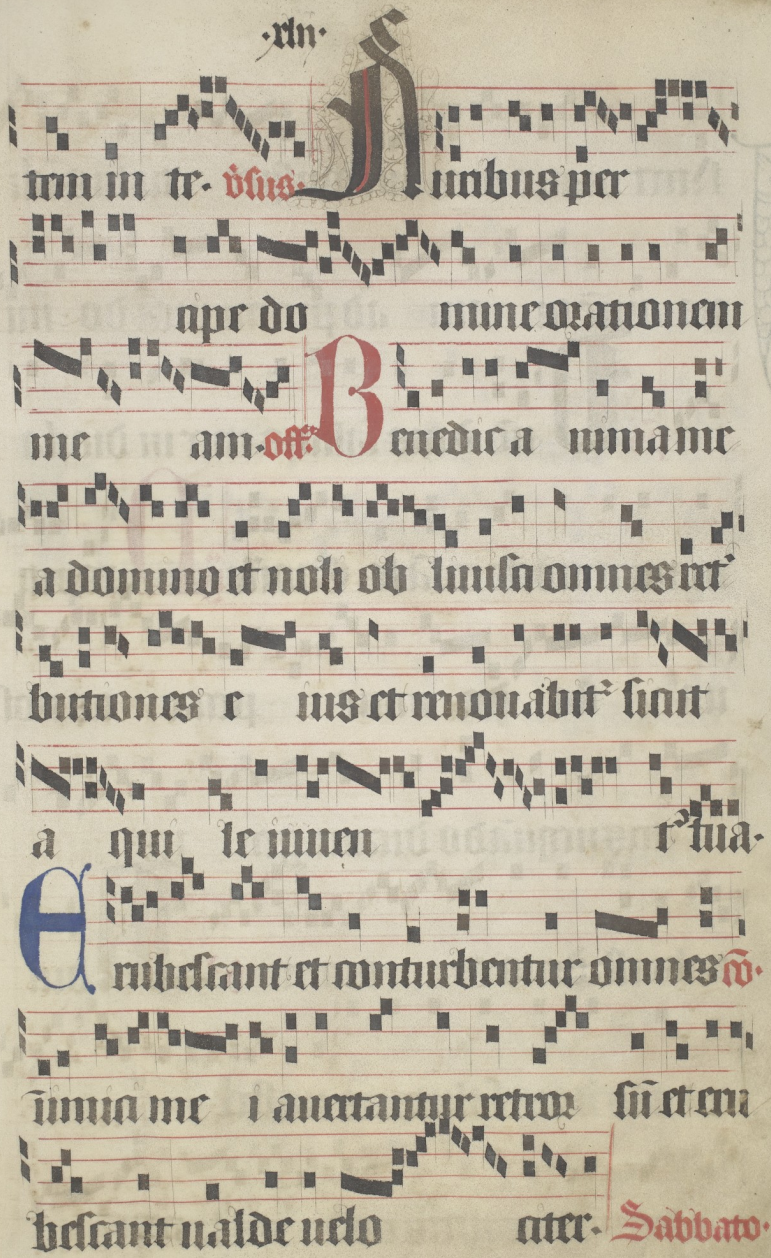 ·xlv·
tem in te· v̉sus· Auribus per
cipe do mine orationem
me am· off̃· Benedic a nima me
a domino et noli ob liuisci omnes ret
butiones e ius et renouabit᷑ sicut
a qui le iuuen t᷑ tua·
Erubescant et conturbentur omnes cō·
inimici me i auertantur retror sū et eru
bescant ualde uelo citer· Sabbato·